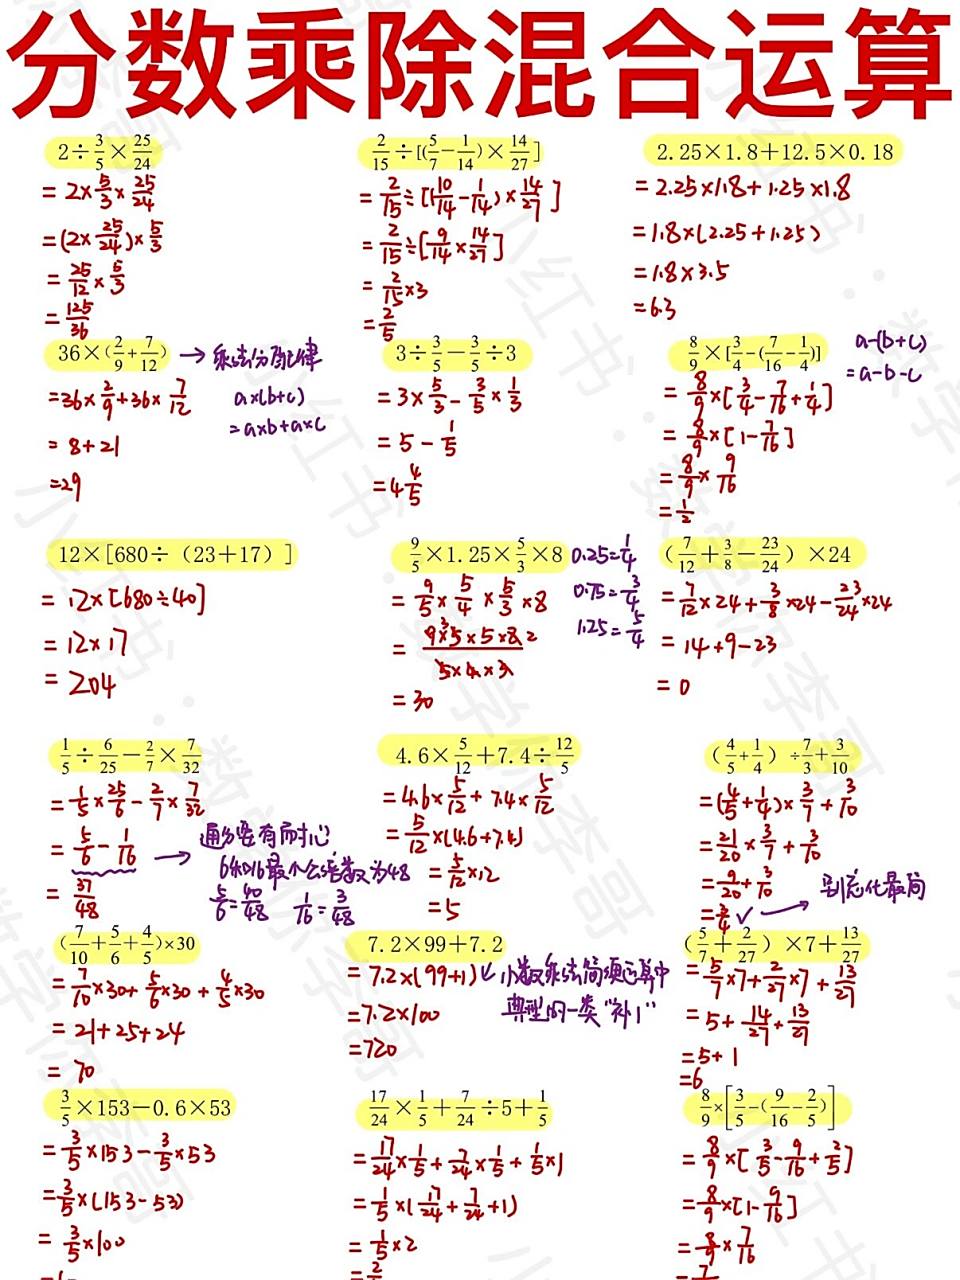 分数乘除混合运算
2÷3/5×25/24
=2×5/3×25/24
=(2×25/24)×5/3
=25/12×5/3
=125/36
2/15÷[(5/7-1/14)×14/27]
=2/15÷[(10/14-1/14)×14/27]
=2/15÷[9/14×14/27]
=2/15×3
=2/5
2.25×1.8+12.5×0.18
=2.25×1.8+1.25×1.8
=1.8×(2.25+1.25)
=1.8×3.5
=6.3
36×(2/9+7/12)→乘法分配律
a×(b+c)
=a×b+a×c
=36×2/9+36×7/12
=8+21
=29
3÷3/5-3/5÷3
=3×5/3-3/5×1/3
=5-1/5
=4 4/5
8/9×[3/4-(7/16-1/4)]
a-(b+c)
=a-b-c
=8/9×[3/4-7/16+1/4]
=8/9×[1-7/16]
=8/9×9/16
=1/2
12×[680÷（23+17）]
=12×[680÷40]
=12×17
=204
9/5×1.25×5/3×8
0.25=1/4
0.75=3/4
1.25=5/4
=9/5×5/4×5/3×8
=9×5×5×8/5×4×3
=30
（7/12+3/8-23/24）×24
=7/12×24+3/8×24-23/24×24
=14+9-23
=0
1/5÷6/25-2/7×7/32
=1/5×25/6-2/7×7/32
=5/6-1/16→
通分要有耐心
6和16最小公倍数为48
5/6=40/48 1/16=3/48
=37/48
4.6×5/12+7.4÷12/5
=4.6×5/12+7.4×5/12
=5/12×(4.6+7.4)
=5/12×12
=5
（4/5+1/4）÷7/3+3/10
=(4/5+1/4)×3/7+3/10
=21/20×3/7+3/10
=9/20+3/10
=3/4✓→别忘化最简
(7/10+5/6+4/5)×30
=7/10×30+5/6×30+4/5×30
=21+25+24
=70
7.2×99+7.2
=7.2×(99+1)
小数乘法简便运算中
典型的一类“补1”
=7.2×100
=720
(5/7+2/27）×7+13/27
=5/7×7+2/27×7+13/27
=5+14/27+13/27
=5+1
=6
3/5×153-0.6×53
=3/5×153-3/5×53
=3/5×(153-53)
=3/5×100
17/24×1/5+7/24÷5+1/5
=17/24×1/5+7/24×1/5+1/5×1
=1/5×(17/24+7/24+1)
=1/5×2
=2
8/9×[3/5-(9/16-2/5)]
=8/9×[3/5-9/16+2/5]
=8/9×[1-9/16]
=8/9×7/16
=7
小红书：数学你李哥